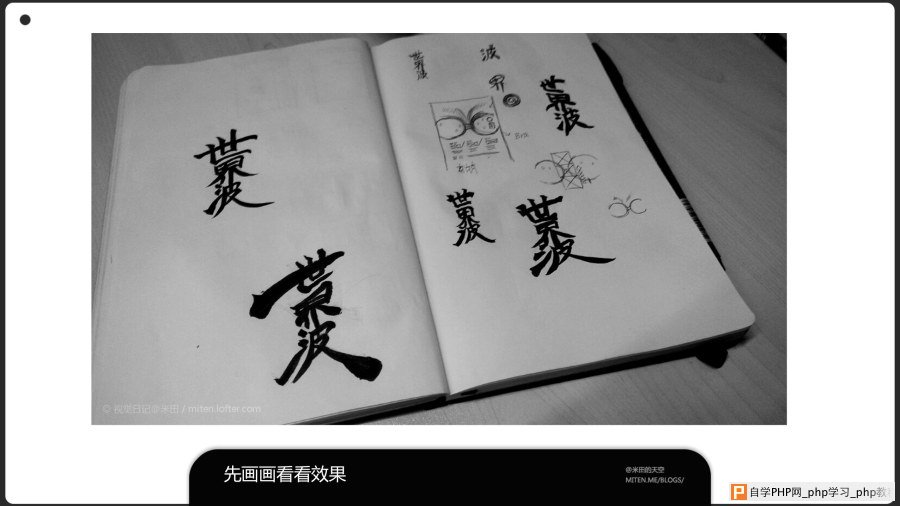 世界波
波
界
世界波
世界波
世界波
世界波
世界波
© 视觉日记@米田 / miten.lofter.com
先画画看看效果
@米田的天空
MITEN.ME/BLOGS/
自学PHP网_php学习_php教